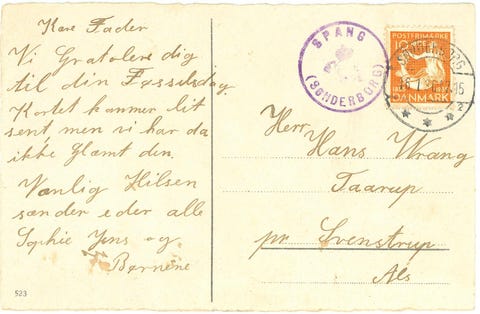 Kære Fader
Vi Gratolere dig
til din Føsselsdag
Kortet kommer lit
sent men vi har da
ikke Glæmt den.
Vænlig Hilsen
sænder eder alle
Sophie Jens og
Børnene
523
SPANG
(SØNDERBORG)
POSTFRIMÆRKE
10
SØNDERBORG
DANMARK
Herr
Hans Wrang
Taarup
pr Svenstrup
Als